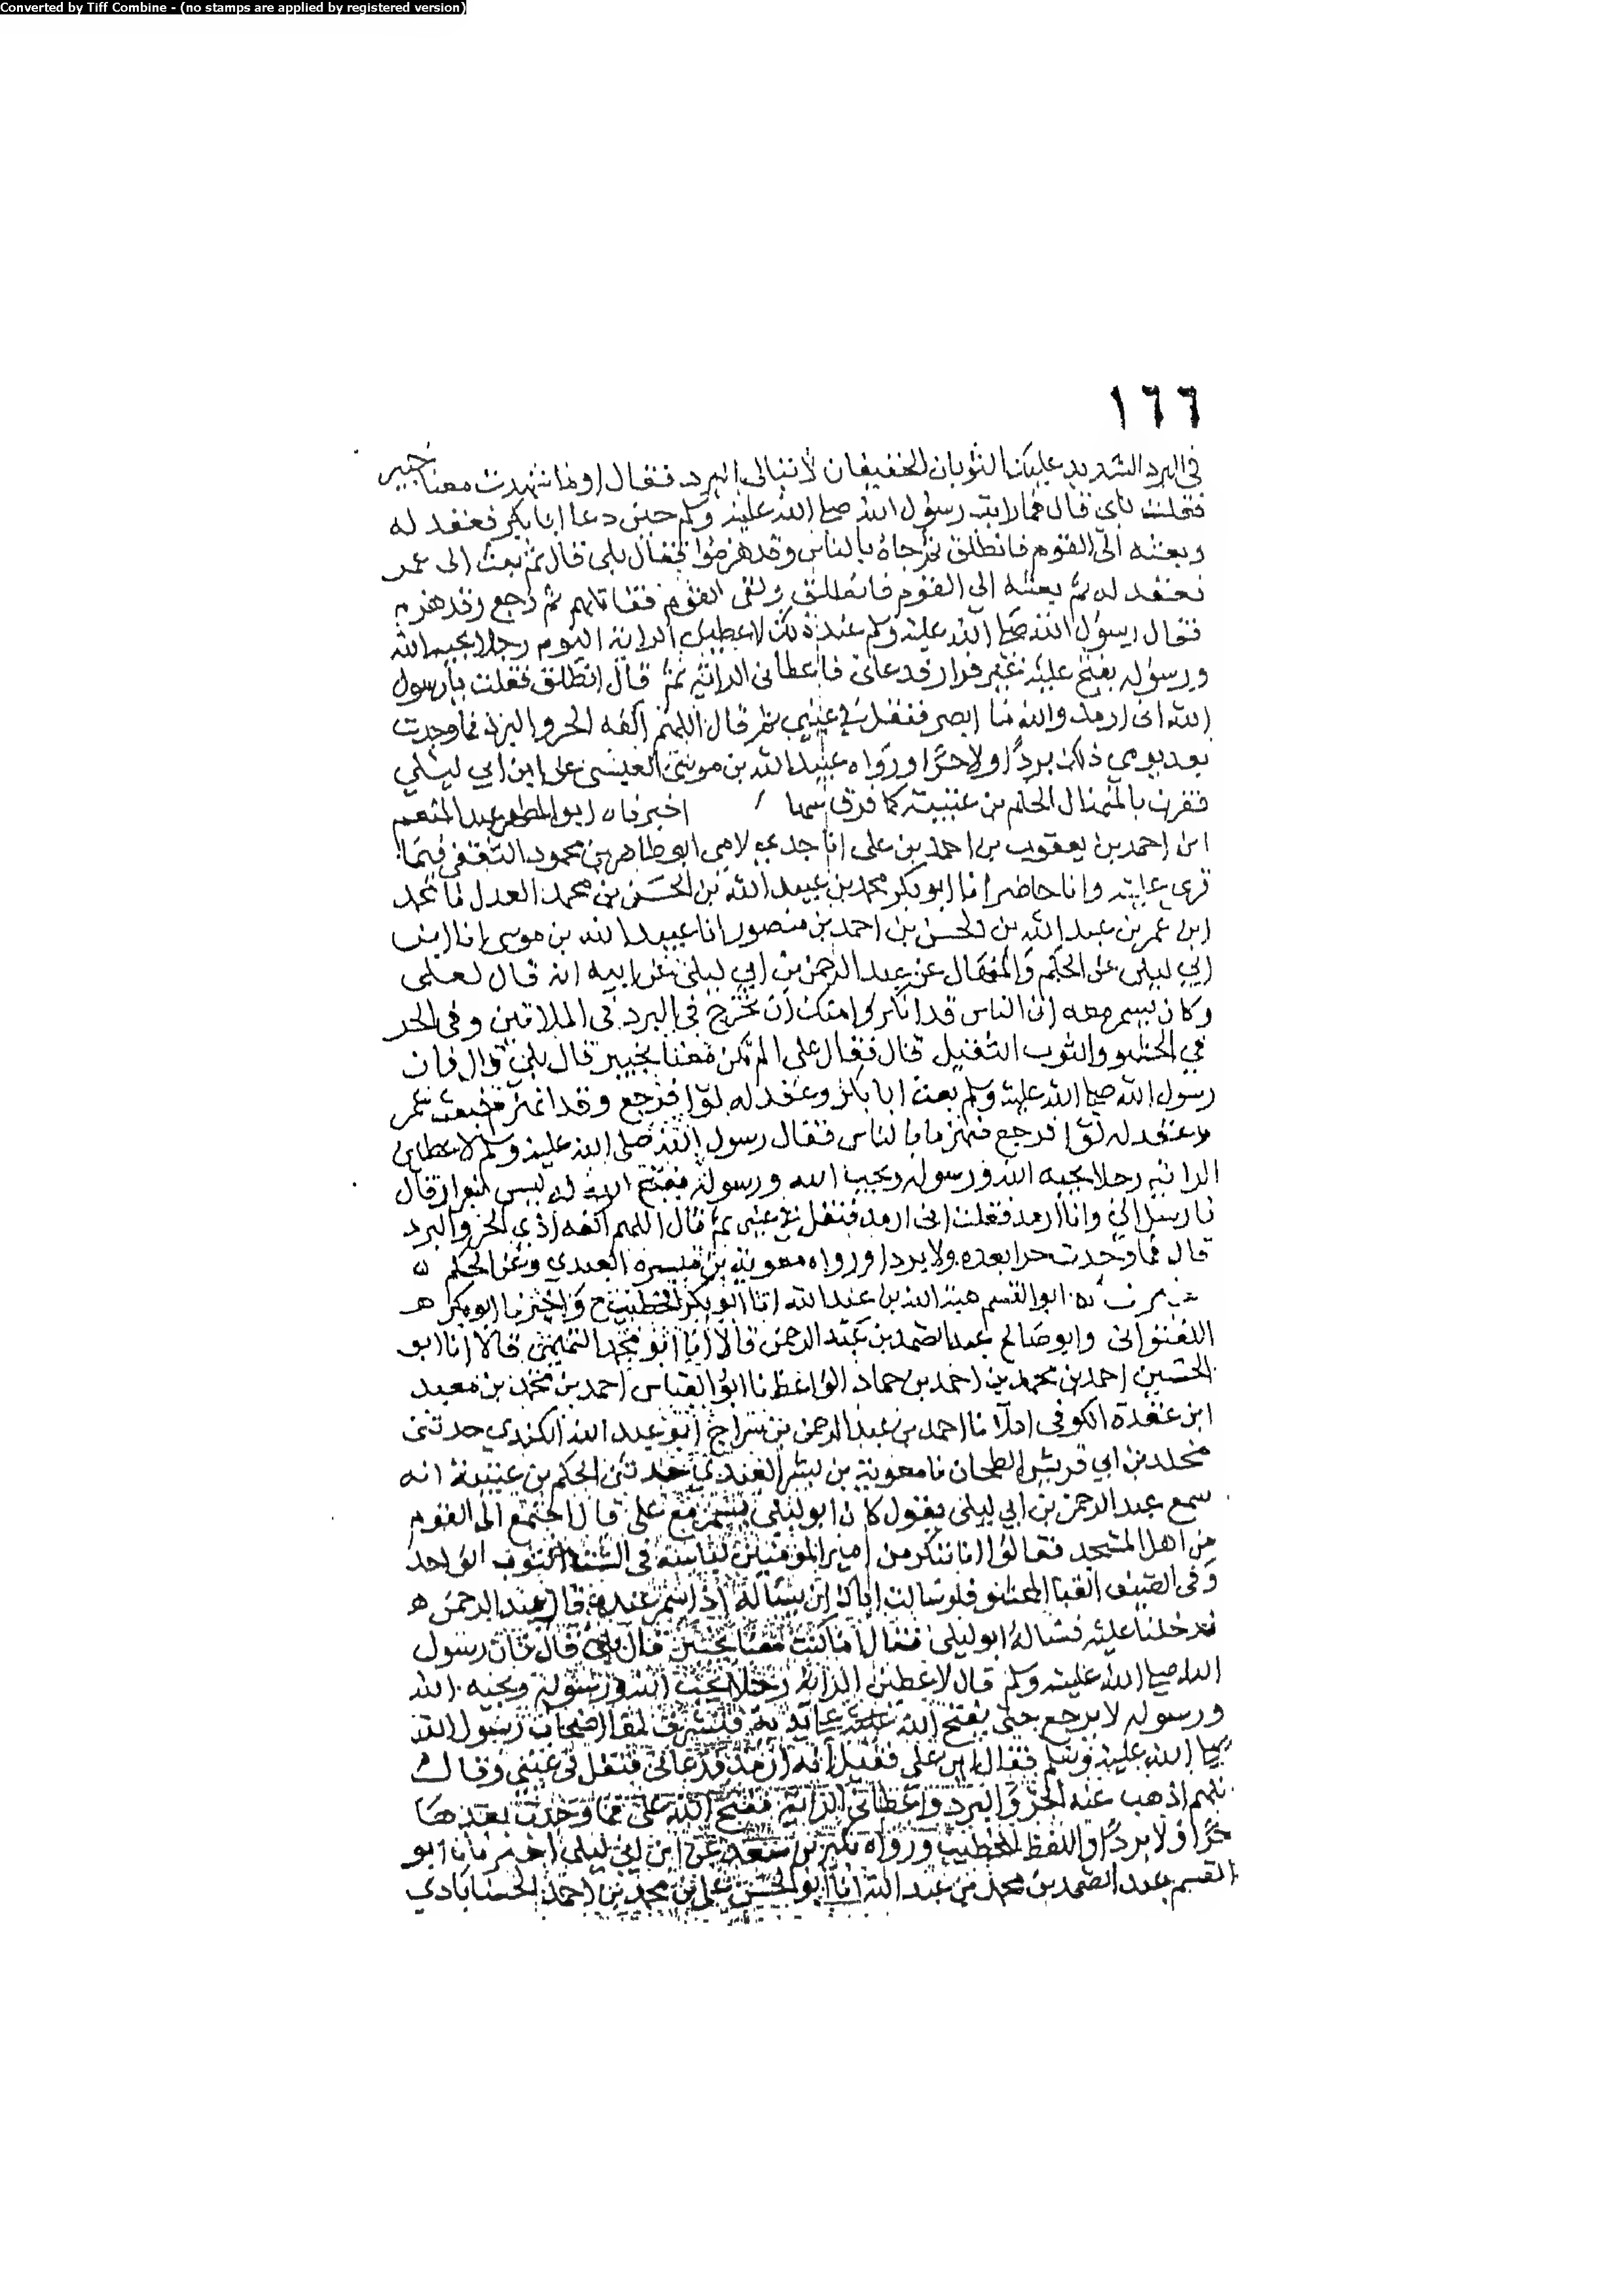 Converted by Tiff Combine - (no stamps are applied by registered version)
١٦٦
في البرد الشديد عليك الثوبان الخفيفان لا تبالي البرد فقال اوما شهدت معنا خيبر
فقلت بلى قال فما رايت رسول الله صلى الله عليه وسلم حين دعا ابا بكر فعقد له
وبعثه الى القوم فانطلق فجاء بالناس وقد هزموا فقال بلى قال ثم بعث الى عمر
فعقد له ثم بعثه الى القوم فانطلق ولقي القوم فقاتلهم ثم رجع وقد هزم
فقال رسول الله صلى الله عليه وسلم عند ذلك لاعطين الراية اليوم رجلا يحبه الله
ورسوله يفتح عليه غير فرار فدعاني فاعطاني الراية ثم قال انطلق فقلت يا رسول
الله اني ارمد والله ما ابصر فتفل في عيني ثم قال اللهم اكفه الحر والبرد فما وجدت
بعد يومي ذلك بردا ولا حرا ورواه عبيد الله بن موسى العبسي عن ابن ابي ليلى
فقرن بالمنهال الحكم بن عتيبة كما فرق اخبرناه ابو المطهر عبد المنعم
ابن احمد بن يعقوب بن احمد بن علي انا جدي لامي ابو طاهر بن محمود الثقفي فيما
قرئ عليه وانا حاضر انا ابو بكر محمد بن عبيد الله بن الحسن بن محمد العدل نا محمد
ابن عمر بن عبد الله بن الحسن بن احمد بن منصور نا عبيد الله بن موسى انا ابن
ابي ليلى عن الحكم والمنهال عن عبد الرحمن بن ابي ليلى عن ابيه انه قال لعلي
وكان يسمر معه ان الناس قد انكروا منك ان تخرج في البرد في الملاءتين وفي الحر
في الحشو والثوب الثقيل قال فقال علي الم تكن معنا بخيبر قال بلى قال فان
رسول الله صلى الله عليه وسلم بعث ابا بكر وعقد له لوا فرجع وقد انهزم فبعث عمر
وعقد له لوا فرجع منهزما بالناس فقال رسول الله صلى الله عليه وسلم لاعطين
الراية رجلا يحبه الله ورسوله ويحب الله ورسوله يفتح الله له ليس بفرار قال
فارسل الي وانا ارمد فقلت اني ارمد فتفل في عيني ثم قال اللهم اكفه اذى الحر والبرد
قال فما وجدت حرا بعده ولا بردا ورواه معوية بن ميسرة العبدي وعن الحكم
ابو القسم هبة الله بن عبد الله انا ابو بكر الخطيب ح واخبرنا ابو بكر
اللفتواني وابو صالح عبد الصمد بن عبد الرحمن قالا انا ابو محمد التميمي قالا انا ابو
الحسين احمد بن محمد بن احمد بن حماد الواعظ نا ابو العباس احمد بن محمد بن سعيد
ابن عقدة الكوفي املا نا احمد بن عبد الرحمن بن سراج ابو عبد الله الكندي حدثني
مخلد بن ابي قريش الطحان نا معوية بن العبدي حدثني الحكم بن عتيبة انه
سمع عبد الرحمن بن ابي ليلى يقول كان ابو ليلى يسمر مع علي قال اجتمع الى القوم
من اهل المسجد فقالوا انا ننكر من امير المؤمنين لباسه في الشتا الثوب الواحد
وفي الصيف القبا المحشو فلو سالت اباك ان يساله اذا سمر عنده قال عبد الرحمن
فدخلنا عليه فساله ابو ليلى فقال اما كنت معنا قال بلى قال فان رسول
الله صلى الله عليه وسلم قال لاعطين الراية رجلا يحب الله ورسوله ويحبه الله
ورسوله لا يرجع حتى يفتح الله عليه فتشرف لها اصحاب رسول الله
صلى الله عليه وسلم فقال اين علي فقيل انه ارمد فدعاني فتفل في عيني وقال
اللهم اذهب عنه الحر والبرد واعطاني الراية ففتح الله علي فما وجدت بعدها
حرا ولا بردا واللفظ للخطيب ورواه بكير بن سعد عن ابن ابي ليلى اخبرنا ابو
القسم عبد الصمد بن محمد بن عبد الله انا ابو الحسن علي بن محمد بن احمد الحسناباذي